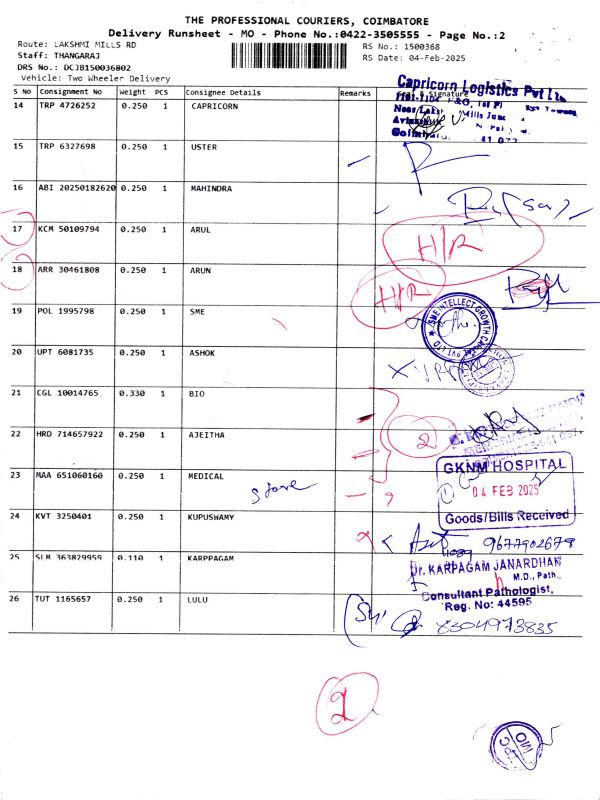 THE PROFESSIONAL COURIERS, COIMBATORE
Delivery Runsheet - MO - Phone No.:0422-3505555 - Page No.:2
Route: LAKSHMI MILLS RD
RS No.: 1500368
Staff: THANGARAJ
RS Date: 04-Feb-2025
DRS No.: DCJB150036802
Vehicle: Two Wheeler Delivery
S No Consignment No Weight PCS Consignee Details Remarks Seal & Signature
Capricorn Logistics Pvt Ltd
14 TRP 4726252 0.250 1 CAPRICORN
15 TRP 6327698 0.250 1 USTER
16 ABI 20250182620 0.250 1 MAHINDRA
17 KCM 50109794 0.250 1 ARUL H/R
18 ARR 30461808 0.250 1 ARUN H/R
19 POL 1995798 0.250 1 SME
SME INTELLECT GROWTH
20 UPT 6081735 0.250 1 ASHOK
21 CGL 10014765 0.330 1 BIO
22 HRD 714657922 0.250 1 AJEITHA 2
23 MAA 651060160 0.250 1 MEDICAL Store
GKNM HOSPITAL
04 FEB 2025
Goods/Bills Received
24 KVT 3250401 0.250 1 KUPUSWAMY
9677902678
25 SLM 363829959 0.110 1 KARPPAGAM
Dr. KARPAGAM JANARDHAN
M.D., Path.,
Consultant Pathologist,
Reg. No: 44595
26 TUT 1165657 0.250 1 LULU
8304973835
2